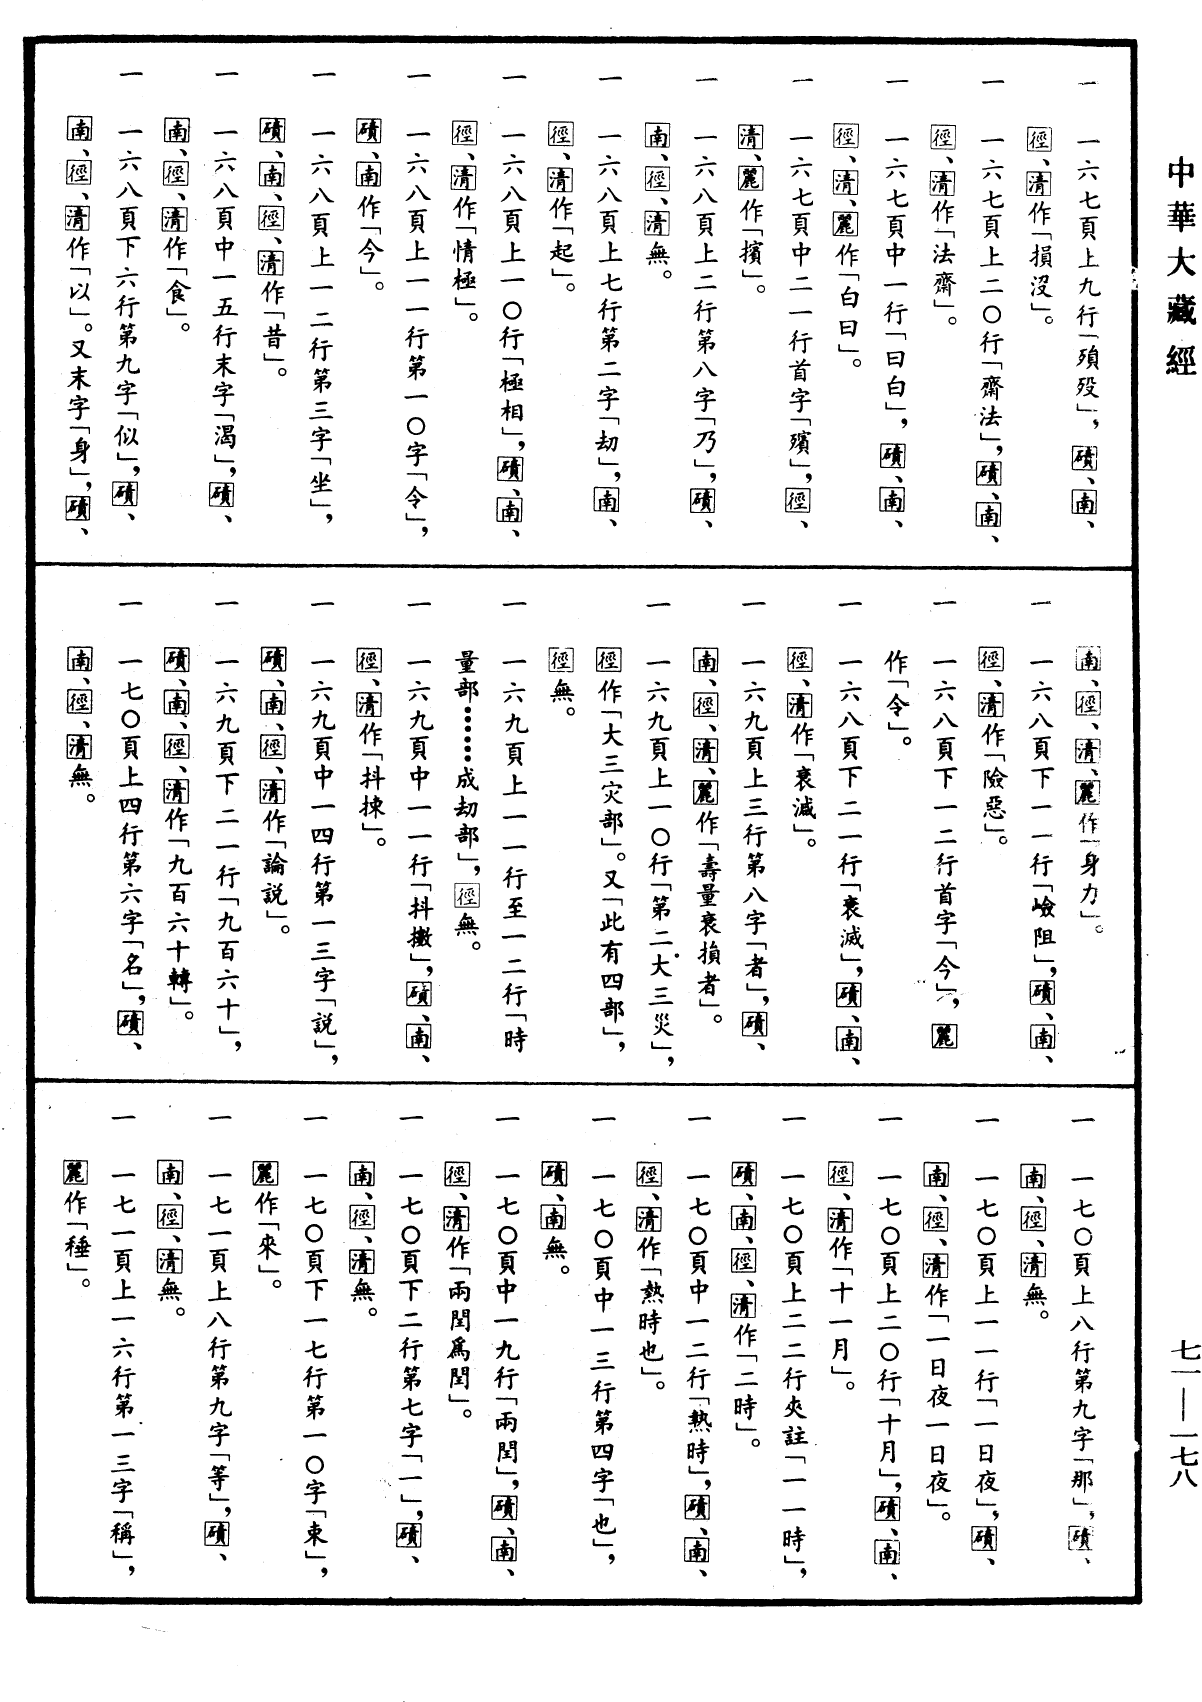 中華大藏經
一　一六七頁上九行「殞歿」，磧、南、
徑、清作「損沒」。
一　一六七頁上二〇行「齋法」，磧、南、
徑、清作「法齋」。
一　一六七頁中一行「曰白」，磧、南、
徑、清、麗作「白曰」。
一　一六七頁中二一行首字「殯」，徑、
清、麗作「擯」。
一　一六八頁上二行第八字「乃」，磧、
南、徑、清無。
一　一六八頁上七行第二字「劫」，南、
徑、清作「起」。
一　一六八頁上一〇行「極相」，磧、南、
徑、清作「情極」。
一　一六八頁上一一行第一〇字「令」，
磧、南作「今」。
一　一六八頁上一二行第三字「坐」，
磧、南、徑、清作「昔」。
一　一六八頁中一五行末字「渴」，磧、
南、徑、清作「食」。
一　一六八頁下六行第九字「似」，磧、
南、徑、清作「以」。又末字「身」，磧、
南、徑、清、麗作「身力」。
一　一六八頁下一一行「嶮阻」，磧、南、
徑、清作「險惡」。
一　一六八頁下一二行首字「今」，麗
作「令」。
一　一六八頁下二一行「衰滅」，磧、南、
徑、清作「衰減」。
一　一六九頁上三行第八字「者」，磧、
南、徑、清、麗作「壽量衰損者」。
一　一六九頁上一〇行「第二大三災」，
徑作「大三灾部」。又「此有四部」，
徑無。
一　一六九頁上一一行至一二行「時
量部……成劫部」，徑無。
一　一六九頁中一一行「抖擻」，磧、南、
徑、清作「抖揀」。
一　一六九頁中一四行第一三字「説」，
磧、南、徑、清作「論説」。
一　一六九頁下二一行「九百六十」，
磧、南、徑、清作「九百六十轉」。
一　一七〇頁上四行第六字「名」，磧、
南、徑、清無。
一　一七〇頁上八行第九字「那」，磧、
南、徑、清無。
一　一七〇頁上一一行「一日夜」，磧、
南、徑、清作「一日夜一日夜」。
一　一七〇頁上二〇行「十月」，磧、南、
徑、清作「十一月」。
一　一七〇頁上二二行夾註「一一時」，
磧、南、徑、清作「二時」。
一　一七〇頁中一二行「熱時」，磧、南、
徑、清作「熱時也」。
一　一七〇頁中一三行第四字「也」，
磧、南無。
一　一七〇頁中一九行「兩閏」，磧、南、
徑、清作「兩閏爲閏」。
一　一七〇頁下二行第七字「一」，磧、
南、徑、清無。
一　一七〇頁下一七行第一〇字「東」，
麗作「來」。
一　一七一頁上八行第九字「等」，磧、
南、徑、清無。
一　一七一頁上一六行第一三字「稱」，
麗作「種」。
七一—一七八